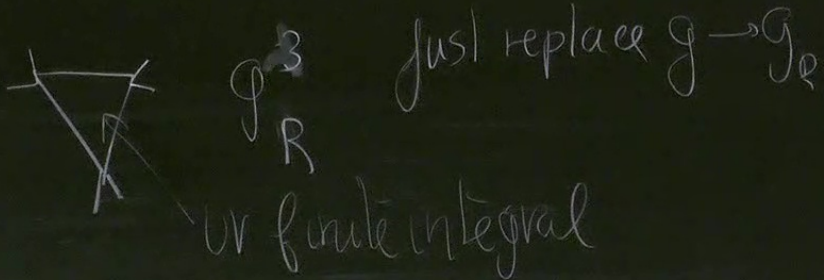 g_R^3 Just replace g → g_R
UV finite integral